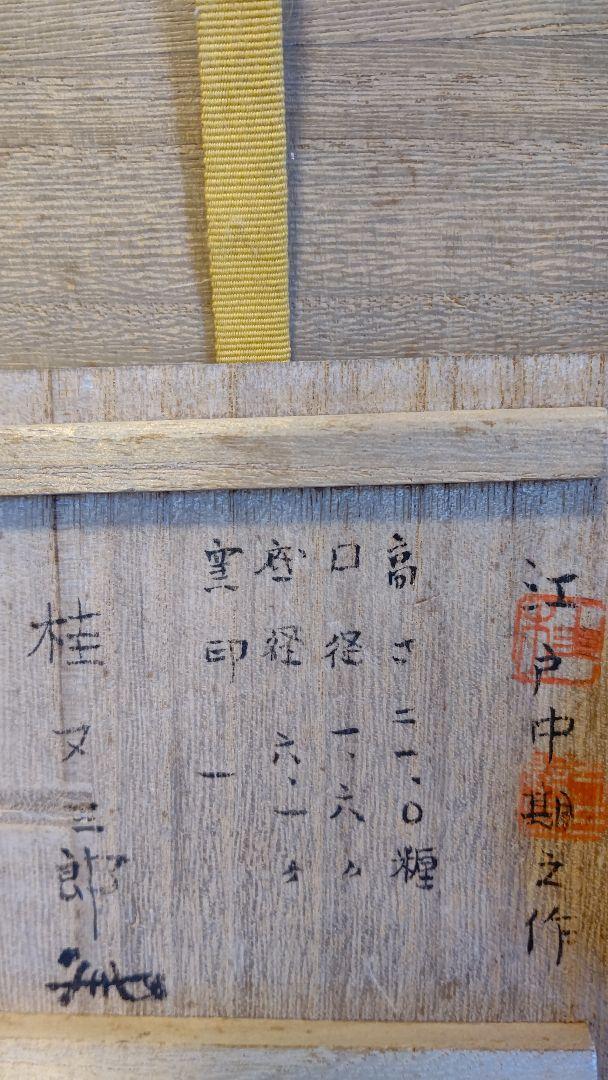 江戸中期之作
高さ二一、〇糎
口径一、六〃
底径六、一〃
窯印一
桂又三郎